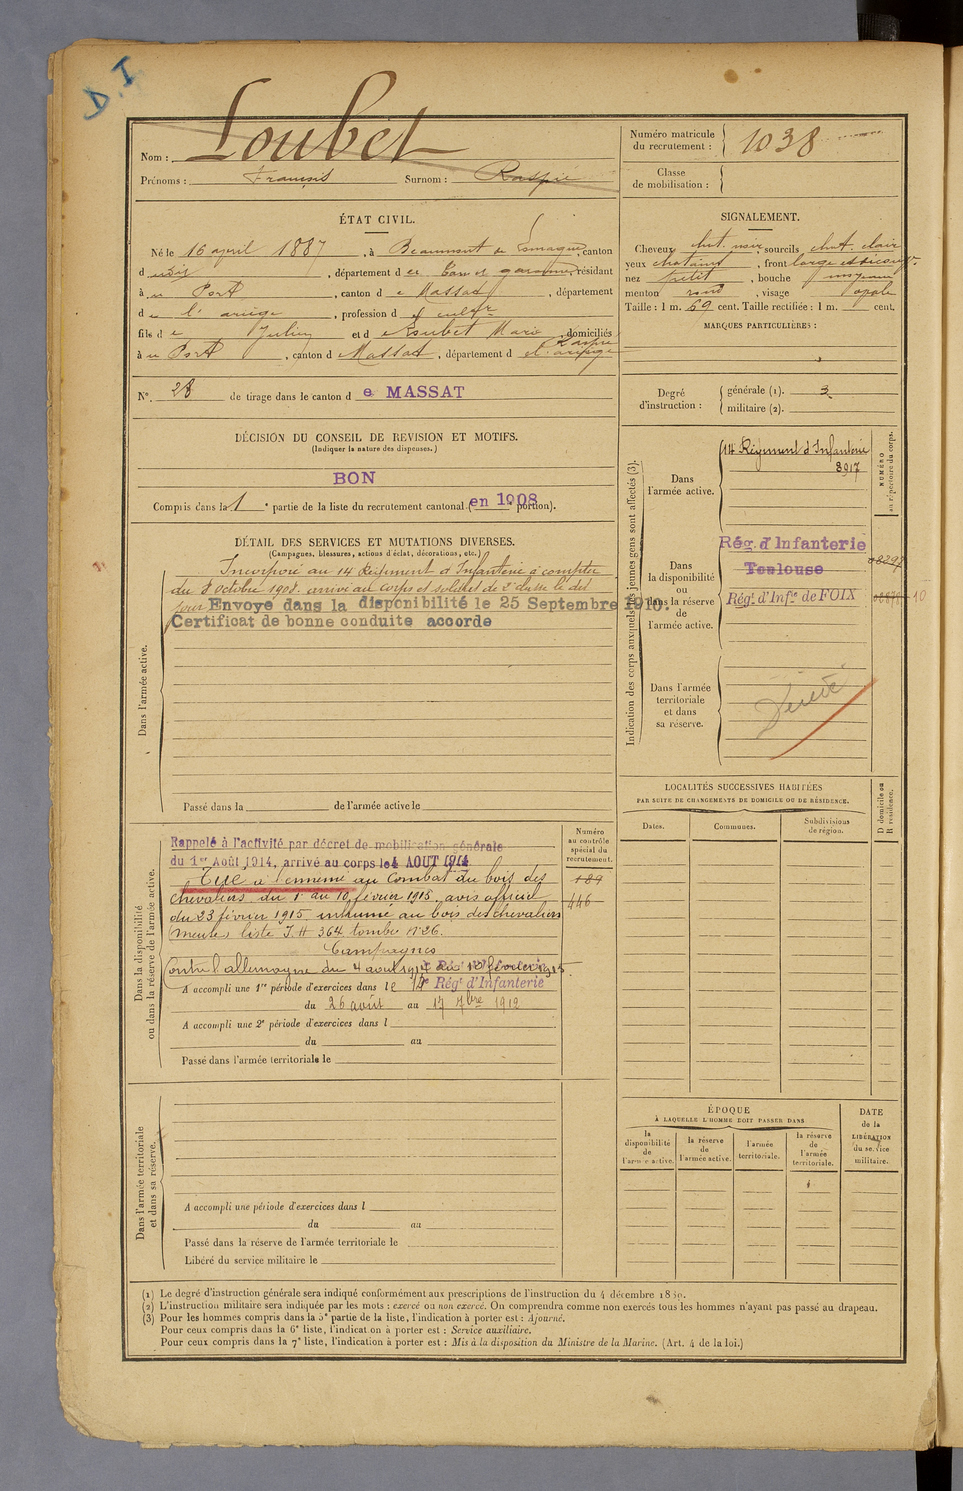 D.I
Nom : Loubet
Prénoms : François Surnom : Raspie
Numéro matricule du recrutement : 1038
Classe de mobilisation :
ÉTAT CIVIL.
Né le 16 avril 1887, à Beaumont de Lomagne, canton
d udit, département d e Tarn et garonne, résidant
à u Port, canton d e Massat, département
d e l'ariège, profession d e cultr
fils d e Julien et d e Loubet Marie, domiciliés
Raspie
à u Port, canton d Massat, département d el'ariège
SIGNALEMENT.
Cheveux chat. noir, sourcils chat. clair
yeux chatains, front large et découvr.
nez petit, bouche moyenne
menton rond, visage ovale
Taille : 1 m. 69 cent. Taille rectifiée : 1 m. cent.
MARQUES PARTICULIÈRES :
N°. 28 de tirage dans le canton d e MASSAT
Degré d'instruction : générale (1). 3
militaire (2).
DÉCISION DU CONSEIL DE REVISION ET MOTIFS.
(Indiquer la nature des dispenses.)
BON
Compris dans la 1e partie de la liste du recrutement cantonal (en 1908 portion).
DÉTAIL DES SERVICES ET MUTATIONS DIVERSES.
(Campagnes, blessures, actions d'éclat, décorations, etc.)
Dans l'armée active.
Incorporé au 14 Régiment d'Infanterie à compter
du 8 octobre 1908. arrivé au corps et soldat de 2e classe le dit
jour Envoyé dans la disponibilité le 25 Septembre 1910.
Certificat de bonne conduite accordé
Passé dans la de l'armée active le
Indication des corps auxquels les jeunes gens sont affectés (3).
NUMÉRO au répertoire du corps.
Dans l'armée active.
14 Régiment d'Infanterie
8917
Dans la disponibilité ou dans la réserve de l'armée active.
Rég. d'Infanterie
Toulouse
Régt. d'Infie de FOIX
10
Dans l'armée territoriale et dans sa réserve.
LOCALITÉS SUCCESSIVES HABITÉES
PAR SUITE DE CHANGEMENTS DE DOMICILE OU DE RÉSIDENCE.
Dates. Communes. Subdivisions de région.
D domicile ou R résidence.
Dans la disponibilité ou dans la réserve de l'armée active.
Numéro au contrôle spécial du recrutement.
189
446
Rappelé à l'activité par décret de mobilisation générale
du 1er Août 1914, arrivé au corps le 4 AOUT 1914
Tué à l'ennemi au Combat du bois des
chevaliers du 1 au 10 février 1915. avis officiel
du 23 février 1915 inhumé au bois des chevaliers
(Meuse) liste J.H 364 tombe N° 26.
Campagnes
Contre l'allemagne du 4 août 1914 au 10 février 1915.
A accompli une 1re période d'exercices dans le 14e Régt d'Infanterie
du 26 août au 17 7bre 1912
A accompli une 2e période d'exercices dans l
du au
Passé dans l'armée territoriale le
ÉPOQUE
À LAQUELLE L'HOMME DOIT PASSER DANS
la disponibilité de l'armée active. la réserve de l'armée active. l'armée territoriale. la réserve de l'armée territoriale.
DATE de la LIBÉRATION du service militaire.
Dans l'armée territoriale et dans sa réserve.
A accompli une période d'exercices dans l
du au
Passé dans la réserve de l'armée territoriale le
Libéré du service militaire le
(1) Le degré d'instruction générale sera indiqué conformément aux prescriptions de l'instruction du 4 décembre 1889.
(2) L'instruction militaire sera indiquée par les mots : exercé ou non exercé. On comprendra comme non exercés tous les hommes n'ayant pas passé au drapeau.
(3) Pour les hommes compris dans la 5e partie de la liste, l'indication à porter est : Ajourné.
Pour ceux compris dans la 6e liste, l'indication à porter est : Service auxiliaire.
Pour ceux compris dans la 7e liste, l'indication à porter est : Mis à la disposition du Ministre de la Marine. (Art. 4 de la loi.)